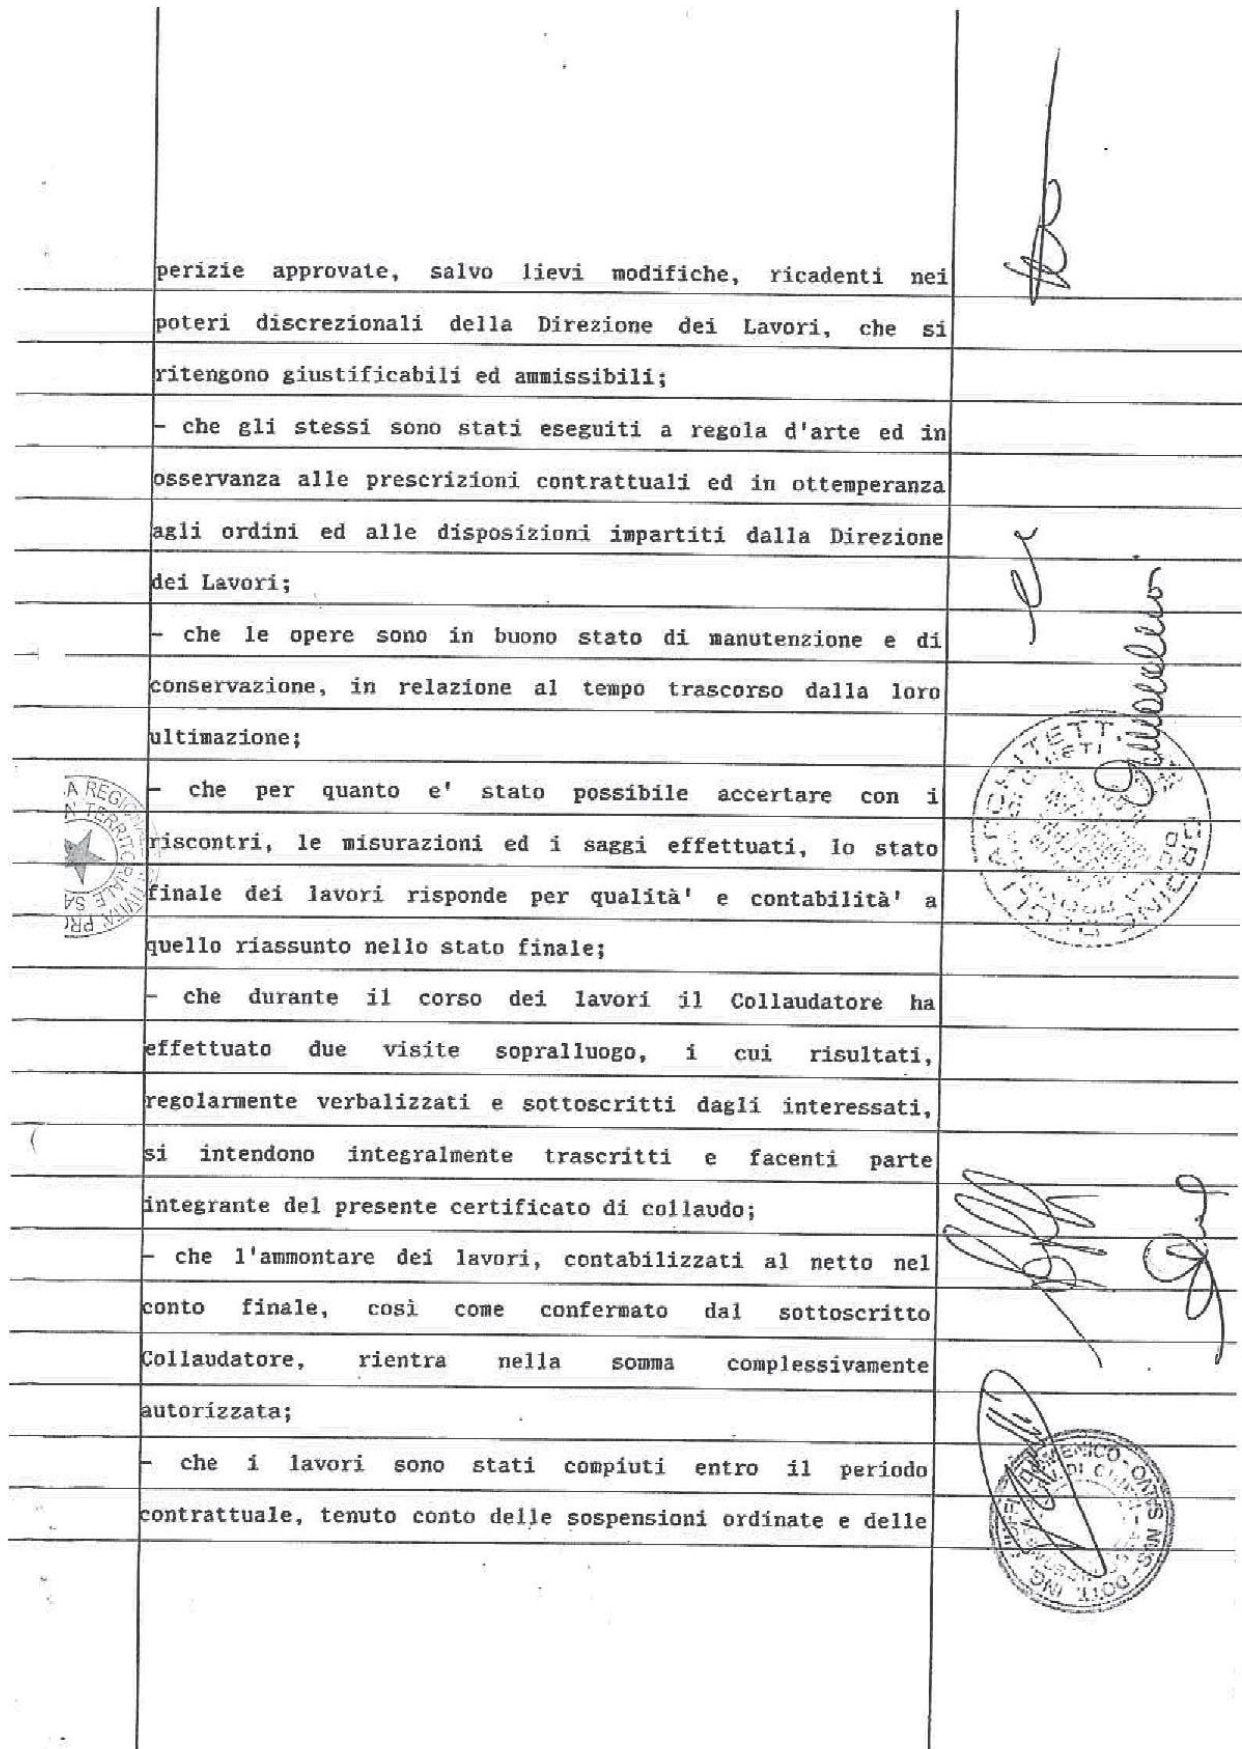 perizie approvate, salvo lievi modifiche, ricadenti nei
poteri discrezionali della Direzione dei Lavori, che si
ritengono giustificabili ed ammissibili;
- che gli stessi sono stati eseguiti a regola d'arte ed in
osservanza alle prescrizioni contrattuali ed in ottemperanza
agli ordini ed alle disposizioni impartiti dalla Direzione
dei Lavori;
- che le opere sono in buono stato di manutenzione e di
conservazione, in relazione al tempo trascorso dalla loro
ultimazione;
- che per quanto e' stato possibile accertare con i
riscontri, le misurazioni ed i saggi effettuati, lo stato
finale dei lavori risponde per qualità' e contabilità' a
quello riassunto nello stato finale;
- che durante il corso dei lavori il Collaudatore ha
effettuato due visite sopralluogo, i cui risultati,
regolarmente verbalizzati e sottoscritti dagli interessati,
si intendono integralmente trascritti e facenti parte
integrante del presente certificato di collaudo;
- che l'ammontare dei lavori, contabilizzati al netto nel
conto finale, così come confermato dal sottoscritto
Collaudatore, rientra nella somma complessivamente
autorizzata;
- che i lavori sono stati compiuti entro il periodo
contrattuale, tenuto conto delle sospensioni ordinate e delle
A REGIO
TERRITORIALE SA
ARCHITETT
ORDINE DEGLI
DOTT. ING.